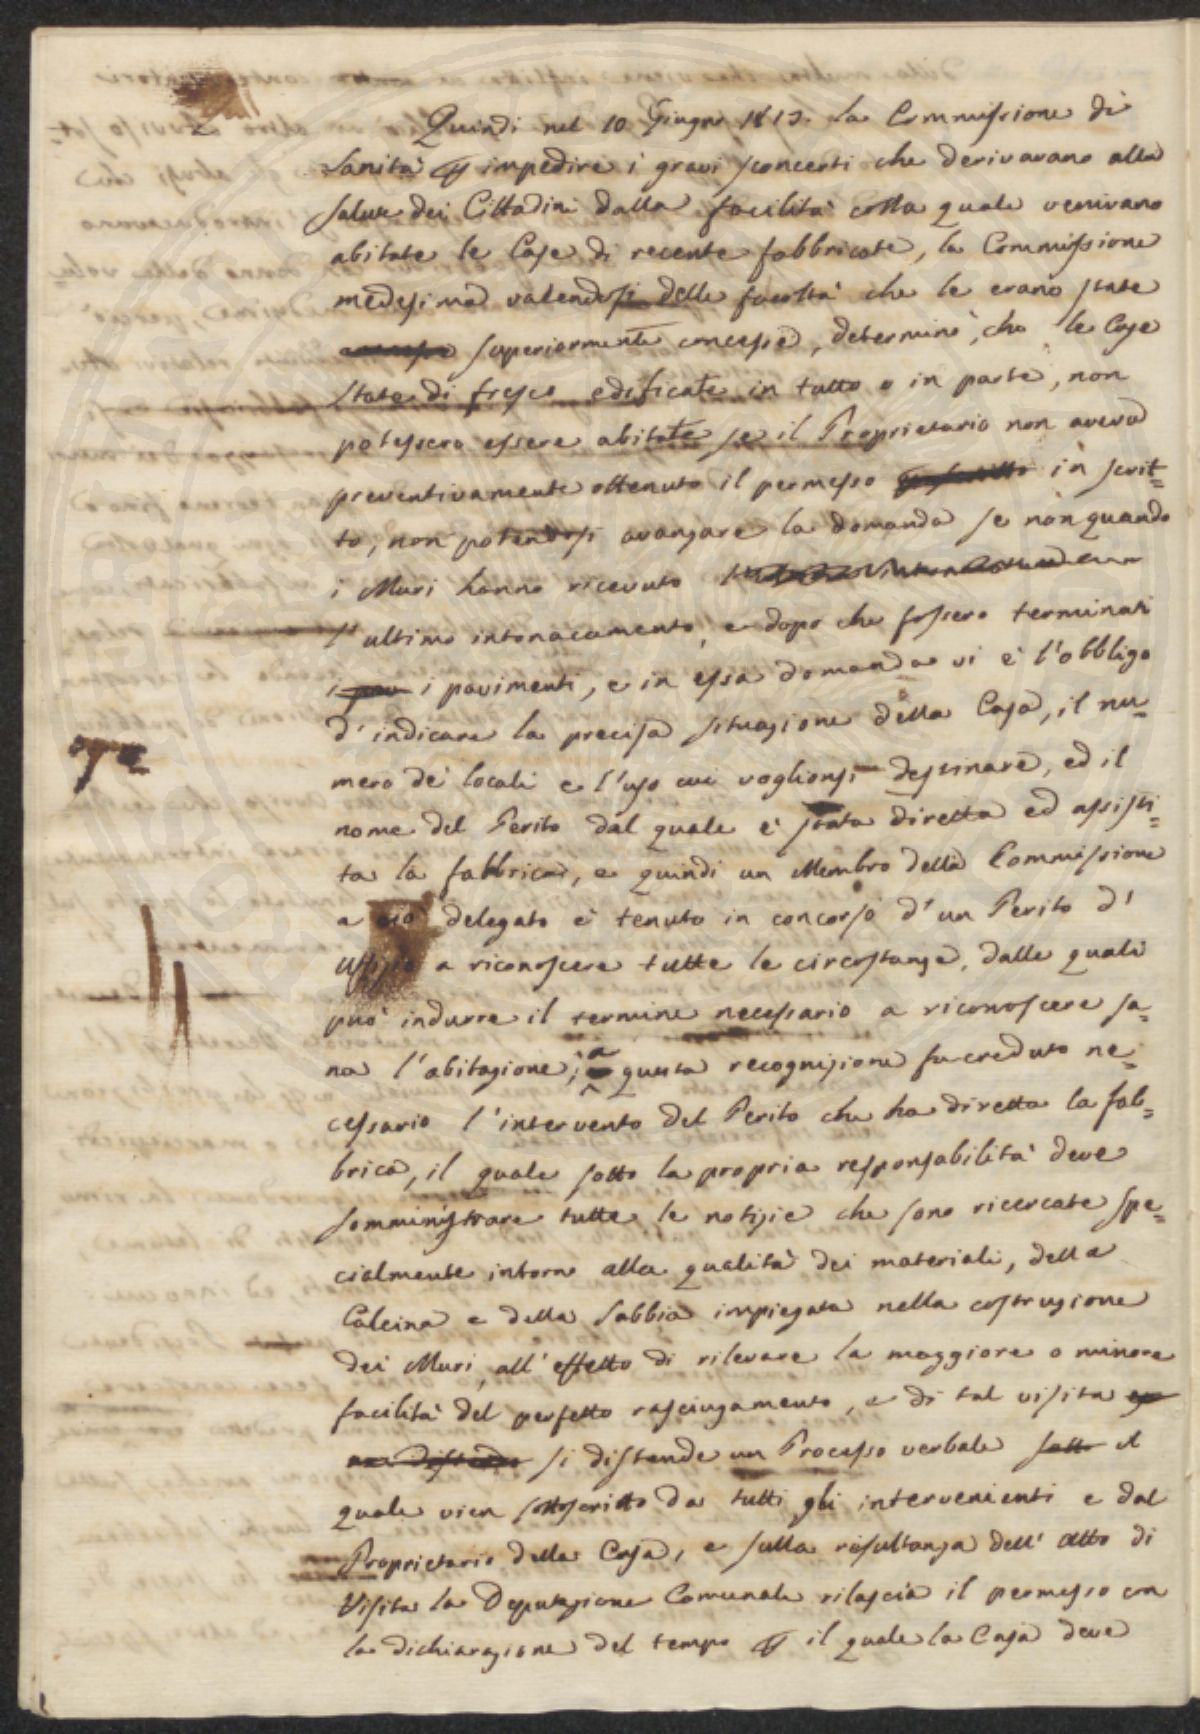 Quindi nel 10 Giugno 1813. la Commissione di
Sanità per impedire i gravi sconcerti che derivavano alla
salute dei Cittadini dalla facilità colla quale venivano
abitate le Case di recente fabbricate, la Commissione
medesima valendosi delle facoltà che le erano state
superiormente concesse, determinò, che le Case
state di fresco edificate in tutto o in parte, non
potessero essere abitate se il Proprietario non aveva
preventivamente ottenuto il permesso in scrit=
to, non potendosi avanzare la domanda se non quando
i Muri hanno ricevuto
l'ultimo intonacamento, e dopo che fossero terminati
i pav i pavimenti, e in essa domanda vi è l'obbligo
d'indicare la precisa situazione della Casa, il nu=
mero de' locali e l'uso cui voglionsi destinare, ed il
nome del Perito dal quale è stata diretta ed assisti=
ta la fabbrica, e quindi un Membro della Commissione
a ciò delegato è tenuto in concorso d'un Perito d'
Uffizio a riconoscere tutte le circostanze, dalle quali
può indurre il termine necessario a riconoscere sa=
na l'abitazione; a questa recognizione fu creduto ne=
cessario l'intervento del Perito che ha diretta la fab=
brica, il quale sotto la propria responsabilità deve
somministrare tutte le notizie che sono ricercate spe=
cialmente intorno alla qualità dei materiali, della
Calcina e della Sabbia impiegata nella costruzione
dei Muri, all'effetto di rilevare la maggiore o minore
facilità del perfetto rasciugamento, e di tal visita
si distende un Processo verbale sotto il
quale vien sottoscritto da tutti gli intervenienti e dal
Proprietario della Casa, e sulla risultanza dell'atto di
Visita la Deputazione Comunale rilascia il permesso con
la dichiarazione del tempo per il quale la Casa deve